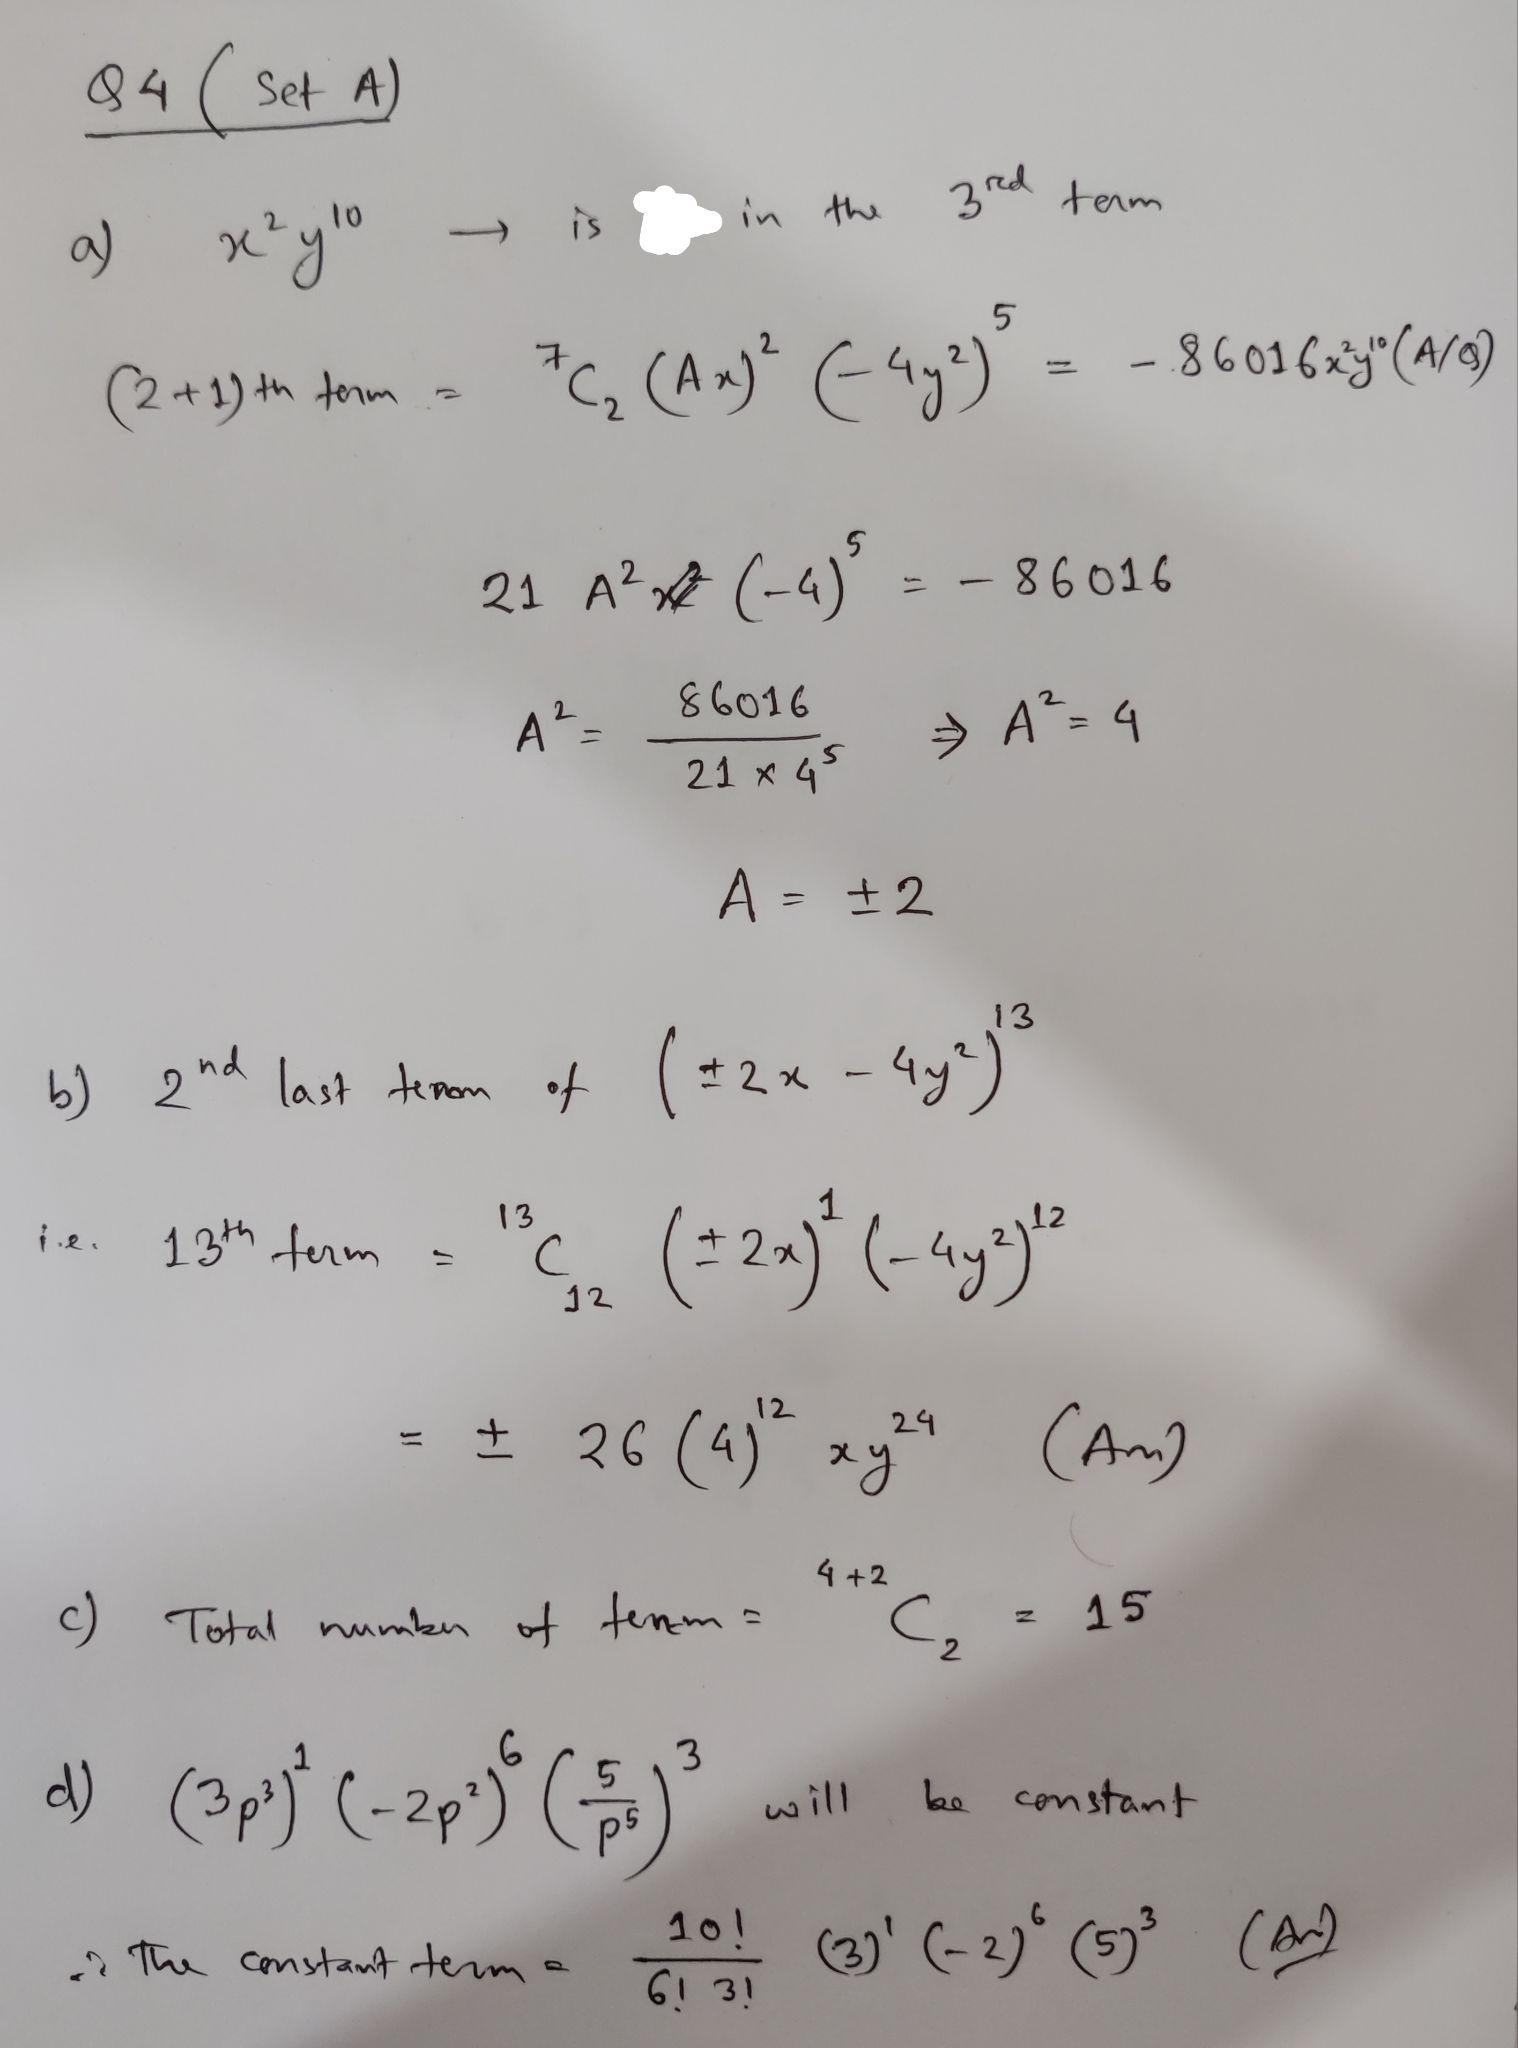 Q4 (Set A)
a) x²y¹⁰ → is in the 3rd term
(2+1)th term = ⁷C₂ (Ax)² (-4y²)⁵ = -86016x²y¹⁰ (A/Q)
21 A² (-4)⁵ = -86016
A² = 86016 / (21 × 4⁵) ⇒ A² = 4
A = ±2
b) 2nd last term of (±2x - 4y²)¹³
i.e. 13th term = ¹³C₁₂ (±2x)¹ (-4y²)¹²
= ± 26 (4)¹² xy²⁴ (Ans)
c) Total number of term = ⁴⁺²C₂ = 15
d) (3p³)¹ (-2p²)⁶ (5/p⁵)³ will be constant
∴ The constant term = 10!/(6! 3!) (3)¹ (-2)⁶ (5)³ (Ans)